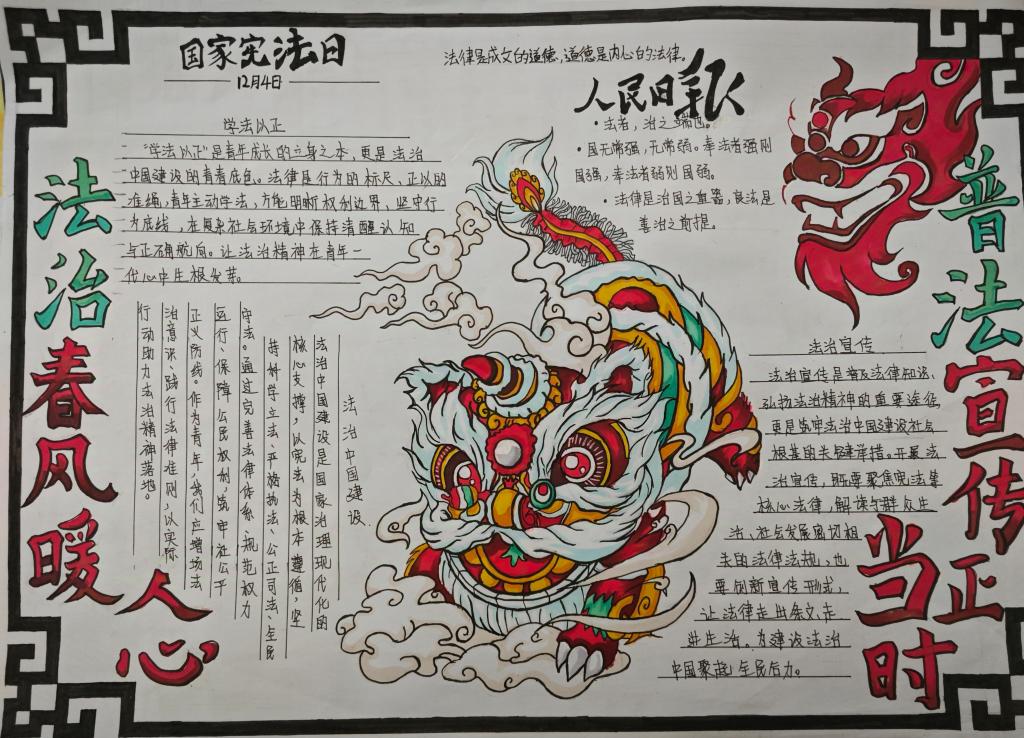 国家宪法日
12月4日
法律是成文的道德,道德是内心的法律。
人民日报
学法以正
"学法以正"是青年成长的立身之本,更是法治
中国建设的青春底色。法律是行为的标尺、正义的
准绳,青年主动学法,方能明晰权利边界、坚守行
为底线,在复杂社会环境中保持清醒认知
与正确航向。让法治精神在青年一
代心中生根发芽。
·法者,治之端也。
·国无常强,无常弱。奉法者强则
国强,奉法者弱则国弱。
·法律是治国之重器,良法是
善治之前提。
法治春风暖人心
普法宣传正当时
法治中国建设
法治中国建设是国家治理现代化的
核心支撑,以宪法为根本遵循,坚
持科学立法、严格执法、公正司法、全民
守法。通过完善法律体系、规范权力
运行、保障公民权利,筑牢社会公平
正义防线。作为青年,我们应增场法
治意识、践行法律准则,以实际
行动助力法治精神落地。
法治宣传
法治宣传是普及法律知识、
弘扬法治精神的重要途径,
更是筑牢法治中国建设社会
根基的关键举措。开展法
治宣传,既要聚焦宪法等
核心法律,解读与群众生
活、社会发展密切相
关的法律法规,也
要创新宣传形式,
让法律走出条文,走
进生活。为建设法治
中国聚起全民合力。